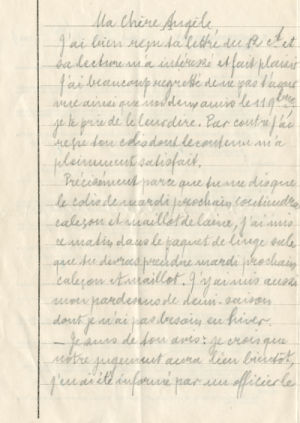 Ma Chère Angèle
J'ai bien reçu ta lettre du 12 ct et
sa lecture m'a intéressé et fait plaisir
J'ai beaucoup regretté de ne pas t'avoir
vue ainsi que nos deux amis le 11 9bre
je te prie de le leur dire. Par contre j'ai
reçu ton colis dont le contenu m'a
pleinement satisfait.
Précisément parce que tu me dis que
le colis de mardi prochain contiendra
caleçon et maillot de laine, j'ai mis
ce matin, dans le paquet de linge sale
que tu devras prendre mardi prochain
caleçon et maillot. J'y ai mis aussi
mon pardessus de demi-saison
dont je n'ai pas besoin en hiver.
— Je suis de ton avis: je crois que
notre jugement aura lieu bientôt,
j'en ai été informé par un officier le